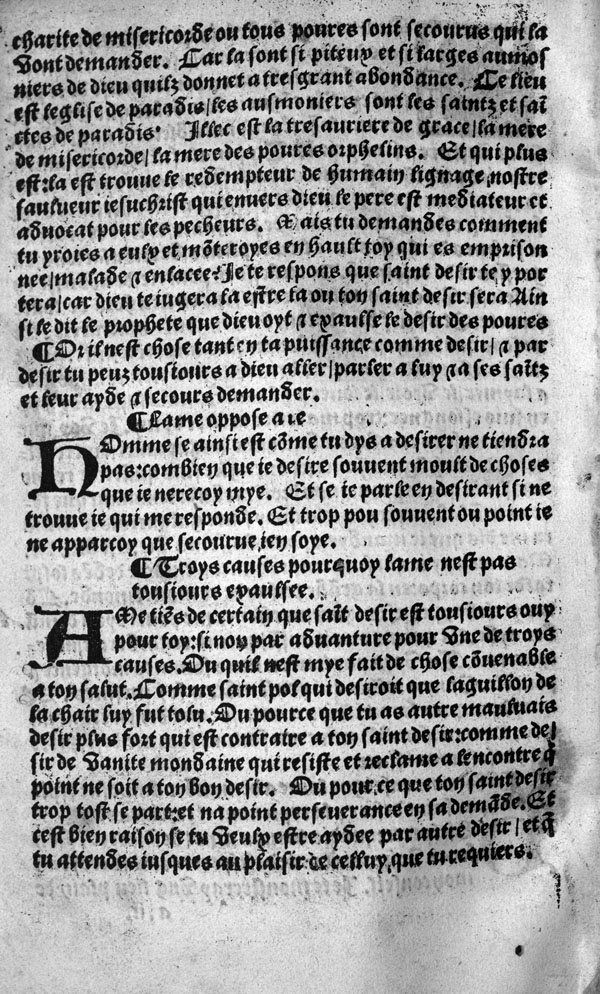 charite de misericorde ou tous poures sont secourus qui la
vont demander. Car la sont si piteux et si larges aumos
niers de dieu quilz donnēt a tresgrant abondance. Ce lieu
est leglise de paradis/les ausmoniers sont les saintz et saī
ctes de paradis. Illec est la tresauriere de grace/la mere
de misericorde/la mere des poures orphelins. Et qui plus
est:la est trouue le redempteur de humain lignage nostre
saulueur iesuchrist qui enuers dieu le pere est mediateur et
aduocat pour les pecheurs. Mais tu demandes comment
tu yroies a eulx et mōteroyes en hault toy qui es emprison
nee/malade ⁊ enlacee? Je te respons que saint desir te y por
tera/car dieu te iugera la estre la ou ton saint desir sera Ain
si le dit le prophete que dieu oyt ⁊ exaulse le desir des poures
¶Or il nest chose tant en ta puissance comme desir/⁊ par
desir tu peuz tousiours a dieu aller/parler a luy ⁊ a ses saītz
et leur ayde ⁊ secours demander.
¶Lame oppose a ce
HOmme se ainsi est cōme tu dys a desirer ne tiendra
pas:combien que ie desire souuent moult de choses
que ie ne recoy mye. Et se ie parle en desirant si ne
trouue ie qui me responde. Et trop pou souuent ou point ie
ne apparcoy que secourue ien soye.
¶Troys causes pourquoy lame nest pas
tousiours exaulsee.
AMe tiēs de certain que saīt desir est tousiours ouy
pour toy:si non par aduanture pour vne de troys
causes. Ou quil nest mye fait de chose cōuenable
a ton salut. Comme saint pol qui desiroit que laguillon de
la chair luy fut tolu. Ou pource que tu as autre mauluais
desir plus fort qui est contraire a ton saint desir:comme de
sir de vanite mondaine qui resiste et reclame a lencontre q̄
point ne soit a ton bon desir. Ou pour ce que ton saint desir
trop tost se part:et na point perseuerance en sa demāde. Et
cest bien raison se tu veulx estre aydee par autre desir/et q̄
tu attendes iusques au plaisir de celluy que tu requiers.